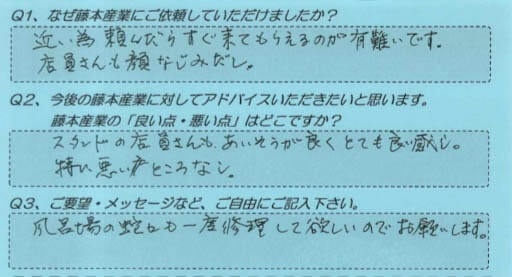 Q1、なぜ藤本産業にご依頼していただけましたか？
近い為頼んだらすぐ来てもらえるのが有難いです。
店員さんも顔なじみだし。
Q2、今後の藤本産業に対してアドバイスいただきたいと思います。
藤本産業の「良い点・悪い点」はどこですか？
スタンドの店員さんも、あいそうが良くとても良い感じ。
特に悪いところなし。
Q3、ご要望・メッセージなど、ご自由にご記入下さい。
風呂場の蛇口も一度修理して欲しいのでお願いします。